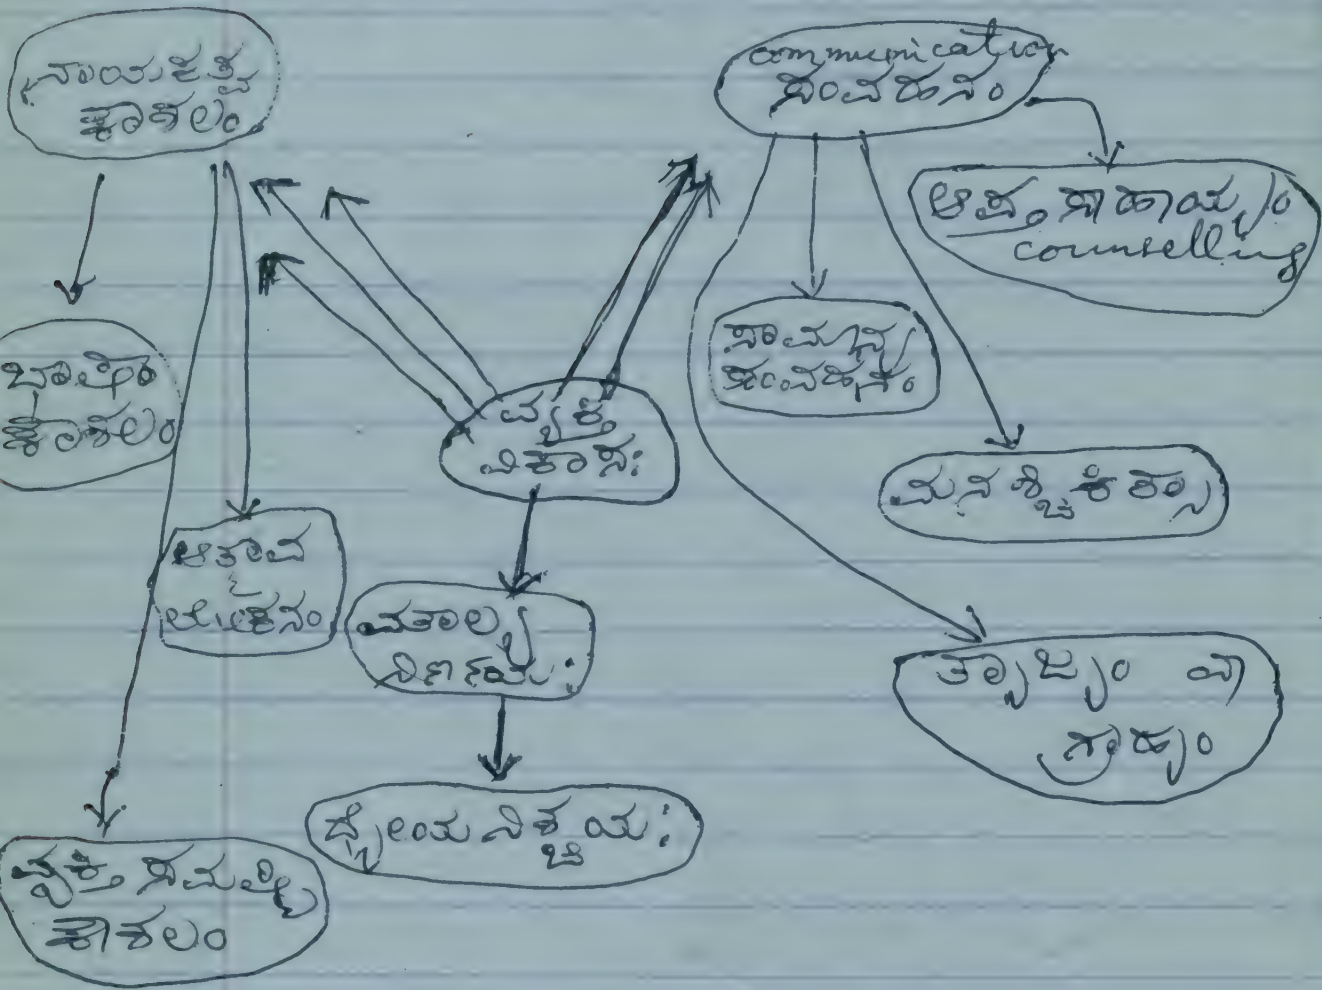 ನಾಯಕತ್ವ
ಕೌಶಲಂ
communication
ಸಂವಹನಂ
ಆಪ್ತ ಸಾಹಾಯ್ಯಂ
counselling
ಸಾಮಾನ್ಯ
ಸಂವಹನಂ
ಭಾಷಾ
ಕೌಶಲಂ
ವ್ಯಕ್ತಿ
ವಿಕಾಸಃ
ಮನಶ್ಚಿಕಿತ್ಸಾ
ಆತ್ಮಾವ
ಲೋಕನಂ
ಮೌಲ್ಯ
ನಿರ್ಣಯಃ
ತ್ಯಾಜ್ಯಂ ವಾ
ಗ್ರಾಹ್ಯಂ
ಧ್ಯೇಯನಿಶ್ಚಯಃ
ವ್ಯಕ್ತಿ ಸಮಷ್ಟಿ
ಕೌಶಲಂ